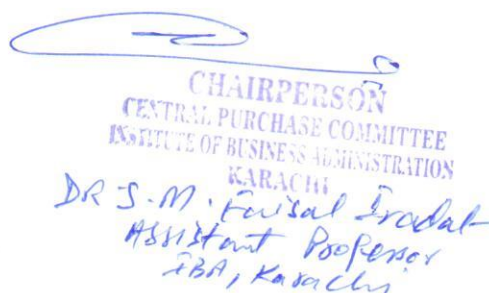 CHAIRPERSON
CENTRAL PURCHASE COMMITTEE
INSTITUTE OF BUSINESS ADMINISTRATION
KARACHI
DR S.M. Faisal Iradat
Assistant Professor
IBA, Karachi